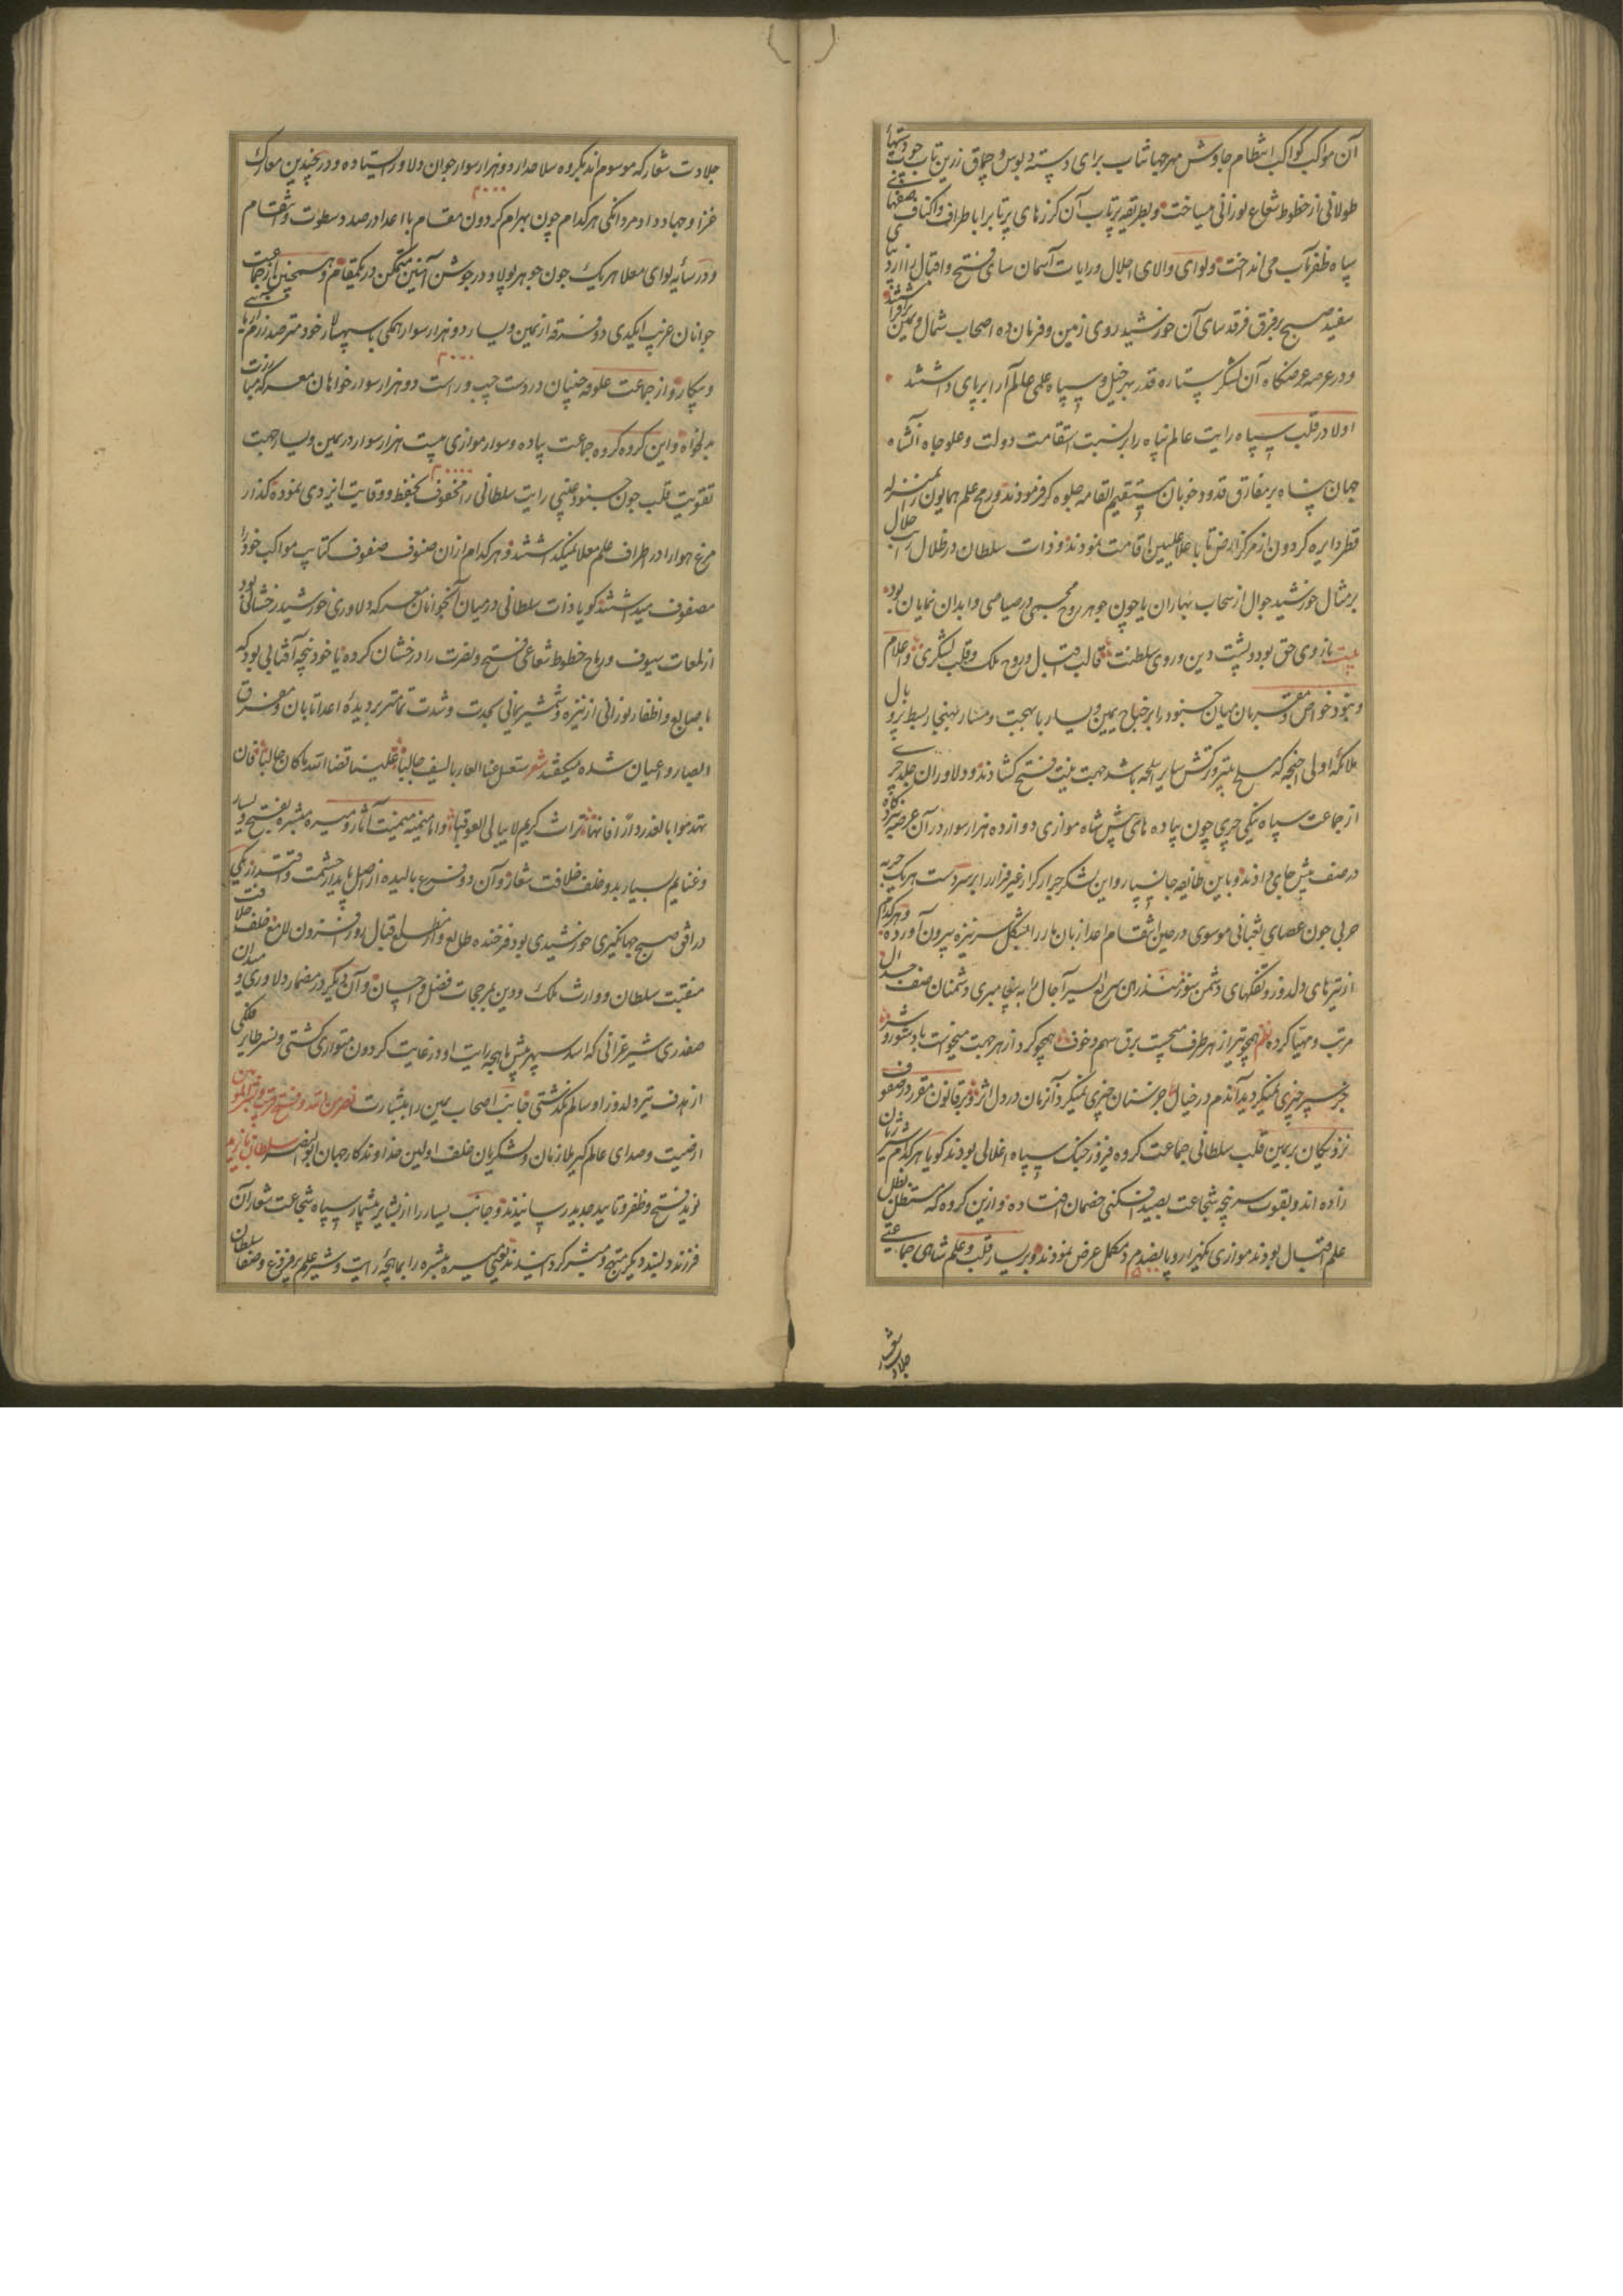 آن مواکب کواکب انتظام جاوش مهر جهانتاب برای دسته دبوس و چماق زرین تاب چوب دستیهای
طولانی از خطوط شعاع نورانی میساخت و بطریقه پرتاب آن کرزهای پرتابرا باطراف و اکناف صفهای
سپاه ظفر مآب می انداخت و لوای والای اجلال و رایات آسمان سای فتح و اقبال را
سفیده صبح بر فرق فرقد سای آن خورشید روی زمین و فرمان ده اصحاب شمال و یمین
و در عرصه عرضکاه آن لشکر ستاره قدر بهر خیل و سپاه علمی عالم آرا بر پای داشتند
اولا در قلب سپاه رایت عالم پناه را بر نسبت استقامت دولت و علو جاه آنشاه
جهان پناه بر مفارق قدود خوبان مستقیم القامه جلوه کر فرمودند و رمح علم همایون را بمنزله
قطر دایره کردون از مرکز ارض تا باعلا علیین اقامت نمودند و ذات سلطان در ظلال
بر مثال خورشید جوال از سحاب بهاران یا چون جوهر روح در صیاصی و ابدان نمایان بود
بیت بازوی حق بود و پشت دین و روی سلطنت قالب اقبال و روح ملک و قلب لشکری و اعلام
و بنود خواص و مقربان میان جنود را بر جناح یمین و یسار با بهجت و مسار بهنجار بسط پر و بال
ملائکه اولی اجنحه که مسلح بتیر و ترکش سایر اسلحه باشد جهت نیت فتح کشادند و دلاوران
از جماعت سپاه ینکی چری چون پیاده های پیش شاه موازی دوازده هزار سوار در آن عرصه
در صف پیش جای دادند و باین طایفه جانسپار و این لشکر جرار کرار غیر فرار را بر سر دست هر یک حربه
حربی چون عصای ثعبانی موسوی در حین انتقام اعدا زبان مار را بشکل سر نیزه بیرون آورده و هر کدام
از تیرهای دلدوز و تفکهای دشمن سوز سریع السیر آجال را به پیغامبری دشمنان صف جدال
مرتب و مهیا کرده نظم همچو تیر از هر طرف میجست برق سهم و خوف همچو کرد از هر جهت میخواست باد شور و شر
بجز سپر چیزی نمیکردید آندم در خیال جز سنان چیزی نمیکرد آنزمان در دل اثر و بر قانون مقرر در صفوف
نزدیکان بر یمین قلب سلطانی جماعت کروه فیروز جنک سپاه اغلانی بودند کویا هر کدام شیر ژیان
زاده اند و بقوت سرپنجه شجاعت بصید افکنی خصمان افتاده و ازین کروه که مستظل بظل
علم اقبال بودند موازی یکهزار و پانصد مرد مکمل عرض نمودند و بر یسار قلب و علم شاهی جماعتی
جلادت شعار
جلادت شعار که موسوم اند بکروه سلاحدار دو هزار سوار جوان دلاور ایستاده و در چندین معارک
۲۰۰۰
غزا و جهاد داد مردانکی هر کدام چون بهرام کردون مقام با اعدا در صدد سطوت و انتقام
و در سایه لوای معلا هر یک چون جوهر پولاد در جوشن آهنین متمکن در یکمقام و همچنین باز از جماعت
جوانان غریب ایکیدی دو فرقه از یمین و یسار دو هزار سوار همکی با سپهسالار خود مترصد رزم
۲۰۰۰
و پیکار و از جماعت علوفه جیان در دست چپ و راست دو هزار سوار خواهان معرکه مبارزت
بدلخواه و این کروه کروه جماعت پیاده و سوار موازی بیست هزار سوار در یمین و یسار جهت
۲۰۰۰۰
تقویت قلب چون جنود غیبی رایت سلطانی را محفوف بحفظ و وقایت ایزدی نموده کذار
مرغ هوا را در اطراف علم معلا نمیکذاشتند و هر کدام ازان صنوف صفوف کتایب مواکب خود را
مصفوف میداشتند کویا ذات سلطانی در میان آنجوانان معرکه دلاوری خورشید رخشانی بود
از لمعات سیوف و رماح خطوط شعاعی فتح و نصرت را درخشان کرده یا خود پنجه آفتابی بود که
با صابع و اظفار نورانی از نیزه و شمشیر یمانی بحدت و شدت تمامتر بر دیده اعدا تابان و مفرق
ابصار و اعیان شده میکفتند شعر سنغسل عنا العار بالسیف جالبا علینا قضاء الله ما کان جالبا فان
تهدموا بالغدر داری فانها تراث کریم لا یبالی العواقبا و اما میمنه میمنت آثار و میسره مبشره بفتح و یسار
و غنایم بسیار بدو خلف خلافت شعار و آن دو فرع بالیده از اصل پایدار حشمت و اقتدار یکی
در افق صبح جهانکیری خورشیدی بود فرخنده طالع و از مطلع اقبال روز افزون
منقبت سلطان و وارث ملک و دین بمرجحات فضل و احسان و آن دیکر در مضمار دلاوری و
صفدری شیر غرانی که اسد سپهر پیش ماهچه رایت او در غایت کردون متواری کشتی و نسر طایر فلکی
از هدف تیر دلدوز او سالم نکذشتی جانب اصحاب یمین را ببشارت نصر من الله و فتح قریب و بشر المؤمنین
از صیت و صدای عالمکیر ملازمان و لشکریان خلف اولین خداوندکار جهان ابو النصر سلطان بایزید
نوید فتح و ظفر و تایید جدید رسانیدند و جانب یسار را از بشایر بیشمار سپاه شجاعت شعار آن
فرزند دلبند دیکر مبتهج و مبشر کردانیدند یعنی میسره مبشره را بماهچه رایت و شیر علم پر فروغ و صفا سلطان